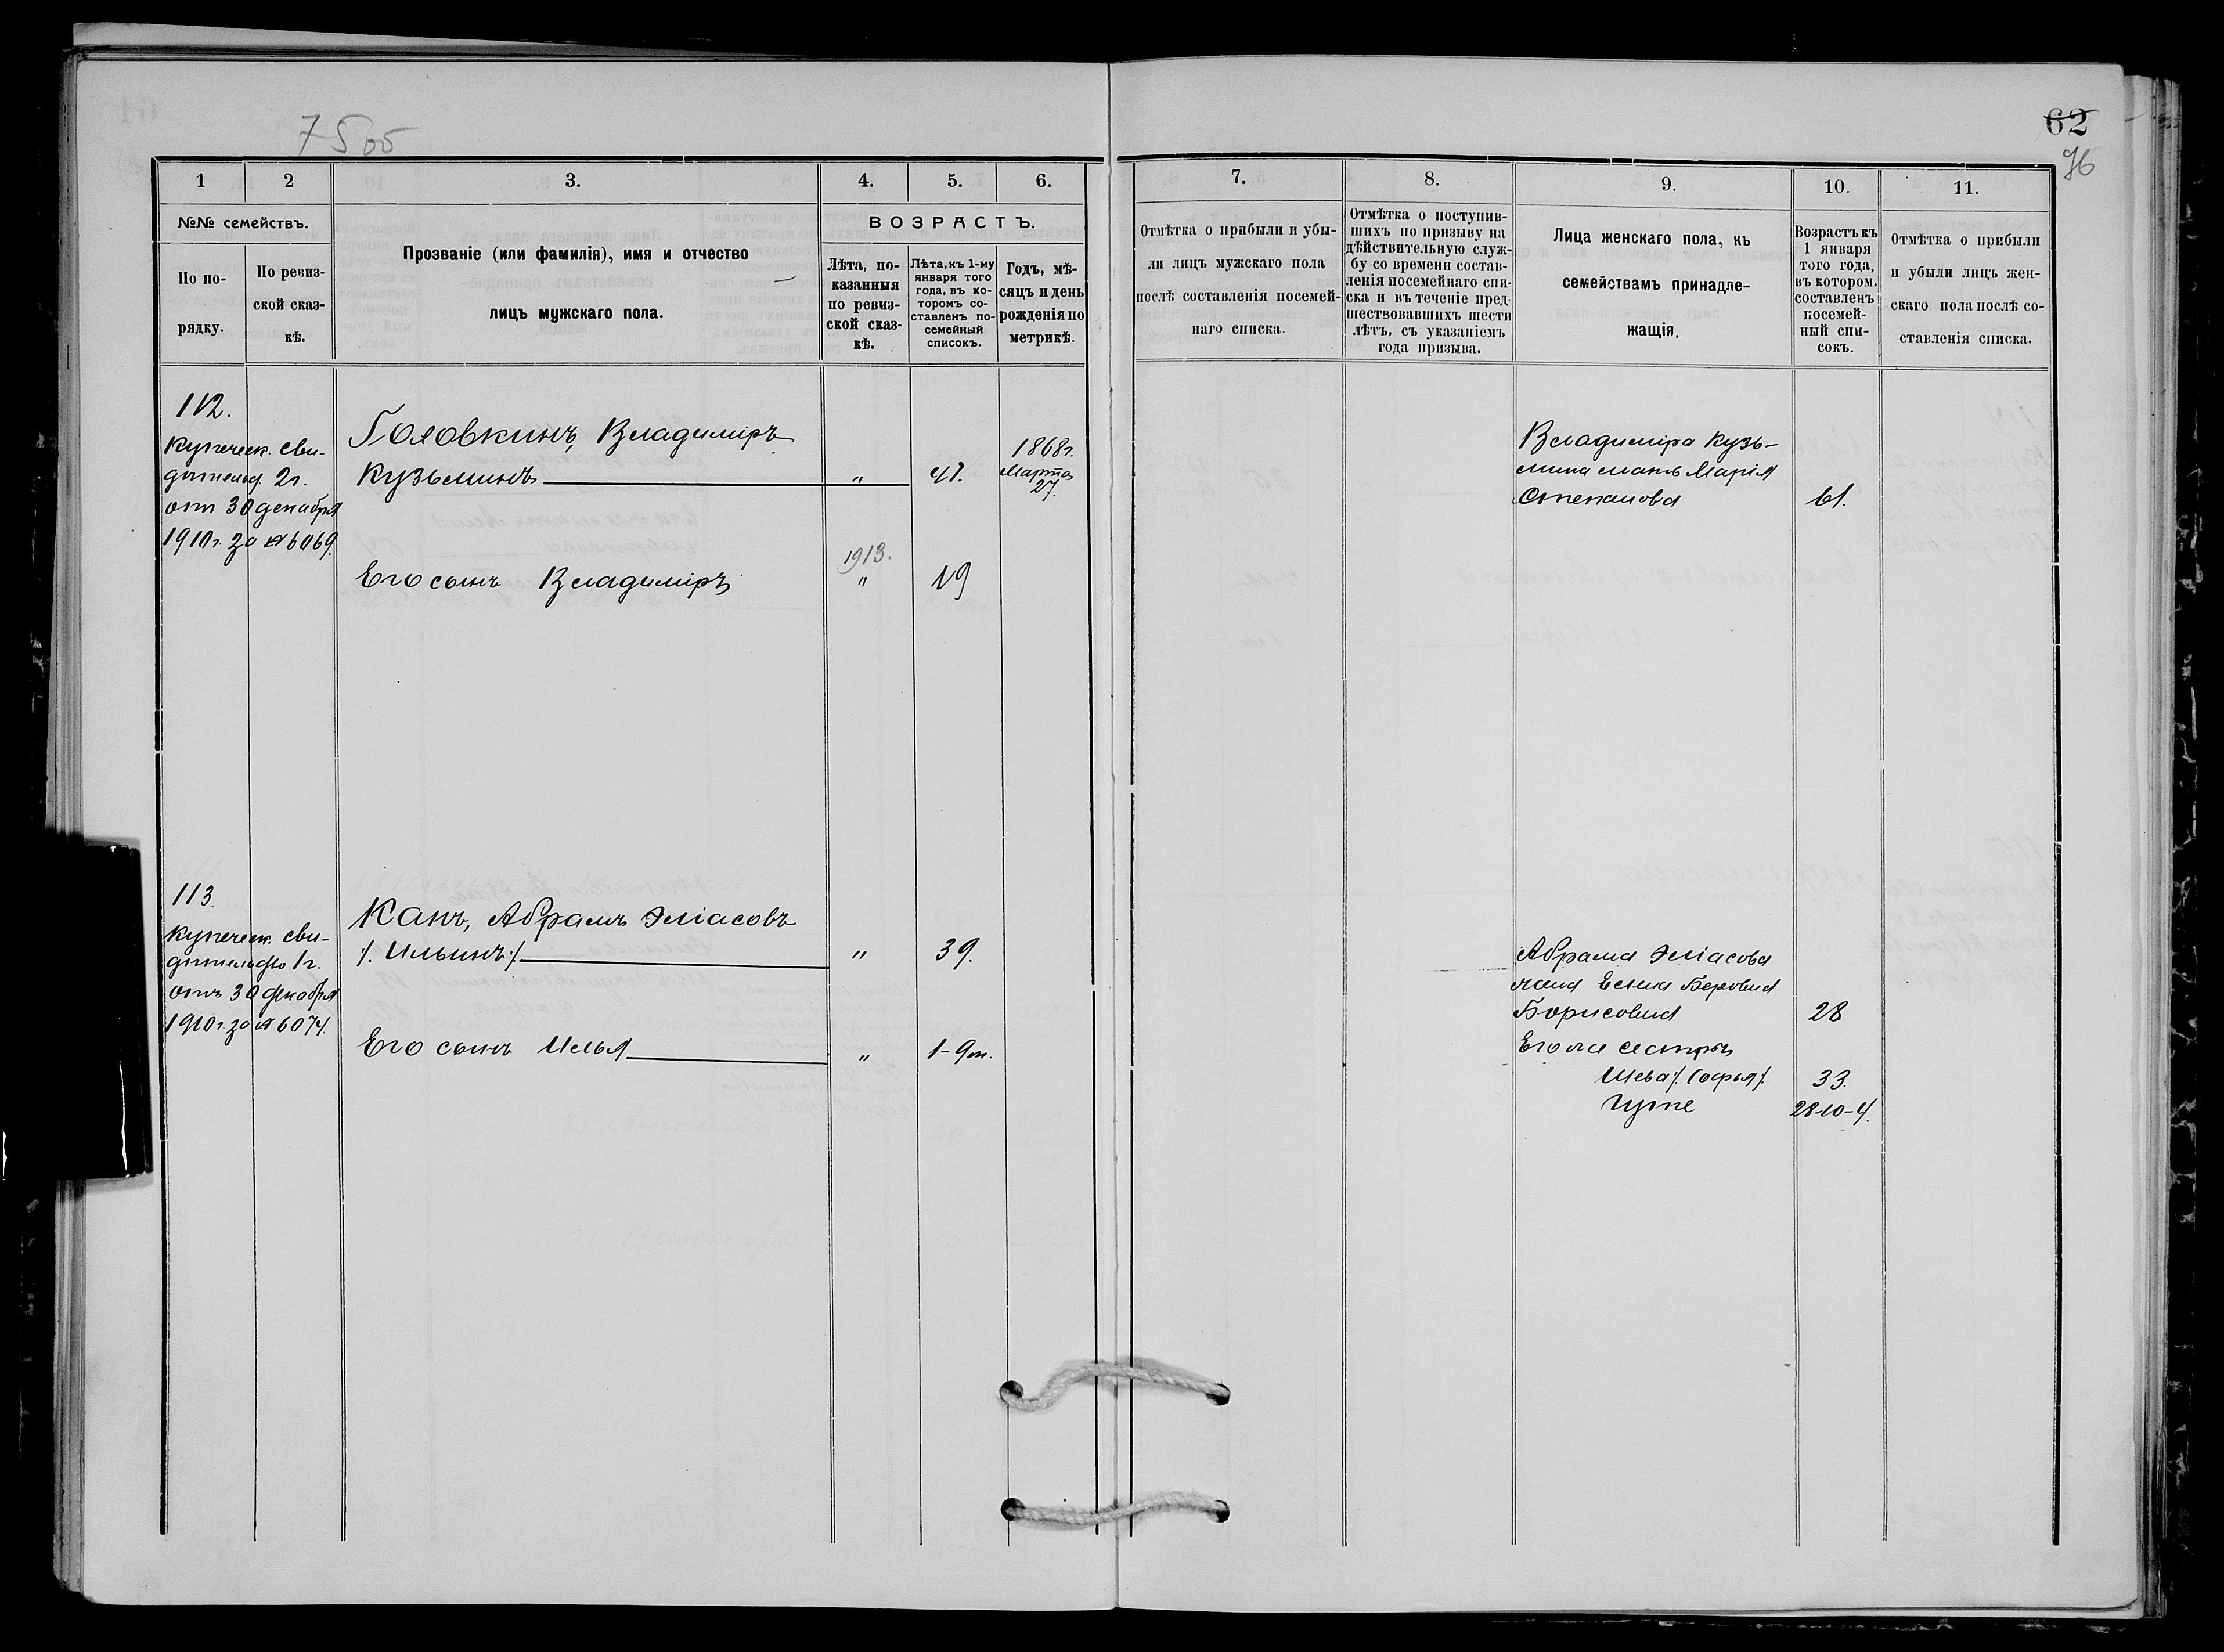 7500
62
76
1
2
3.
4.
5.
6.
7.
8.
9.
10.
11.
№№ семействъ.
По по-
рядку.
По ревиз-
ской сказ-
кѣ.
Прозваніе (или фамилія), имя и отчество
лицъ мужскаго пола.
ВОЗРАСТЪ.
Лѣта, по-
казанныя
по ревиз-
ской сказ-
кѣ.
Лѣта, къ 1-му
января того
года, въ ко-
торомъ со-
ставленъ по-
семейный
списокъ.
Годъ, мѣ-
сяцъ и день
рожденія по
метрикѣ.
Отмѣтка о прибыли и убы-
ли лицъ мужскаго пола
послѣ составленія посемей-
наго списка.
Отмѣтка о поступив-
шихъ по призыву на
дѣйствительную служ-
бу со времени состав-
ленія посемейнаго спи-
ска и въ теченіе пред-
шествовавшихъ шести
лѣтъ, съ указаніемъ
года призыва.
Лица женскаго пола, къ
семействамъ принадле-
жащія,
Возрастъ къ
1 января
того года,
въ котором.
составленъ
посемей-
ный спи-
сокъ.
Отмѣтка о прибыли
и убыли лицъ жен-
скаго пола послѣ со-
ставленія списка.
112.
Купеческ. сви-
дѣтельст. 2г.
отъ 30 декабря
1910 г. за № 6069.
Головкинъ, Владиміръ
Кузьминъ " 41. 1868 г.
Марта
27.
Владиміра Кузь-
мина мать Марія
Степанова 61.
1913.
Его сынъ Владиміръ " 19
113.
Купеческ. сви-
дѣтельство 1 г.
отъ 30 декабря
1910 г. за № 6074.
Канъ, Абрамъ Эліасовъ
/. Ильинъ ./ " 39.
Его сынъ Илья " 1-9 м.
Абрама Эліасова
жена Беровна
Борисовна 28
Его же сестры
Шева /. Софья ./ 33.
28-10-4.